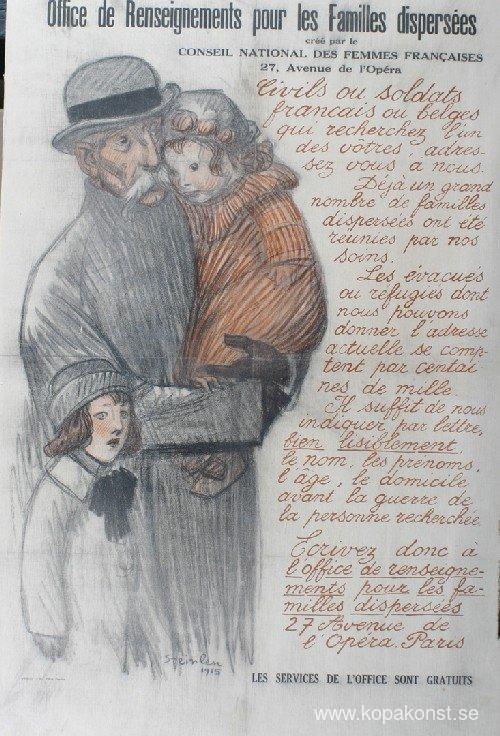 Office de Renseignements pour les Familles dispersées
créé par le
CONSEIL NATIONAL DES FEMMES FRANÇAISES
27, Avenue de l'Opéra
Civils ou soldats
francais ou belges
qui recherchez l'un
des vôtres, adres-
sez vous a nous.
Déjà un grand
nombre de familles
dispersées ont été
réunies par nos
soins.
Les évacués
ou réfugiés dont
nous pouvons
donner l'adresse
actuelle se comp-
tent par centai
nes de mille.
Il suffit de nous
indiquer par lettre,
bien lisiblement,
le nom, les prénoms,
l'âge, le domicile
avant la guerre de
la personne recherchée.
Ecrivez donc à
l'office de renseigne-
ments pour les fa-
milles dispersées
27 Avenue de
l'Opéra. Paris
Steinlen
1915
LES SERVICES DE L'OFFICE SONT GRATUITS
www.kopakonst.se